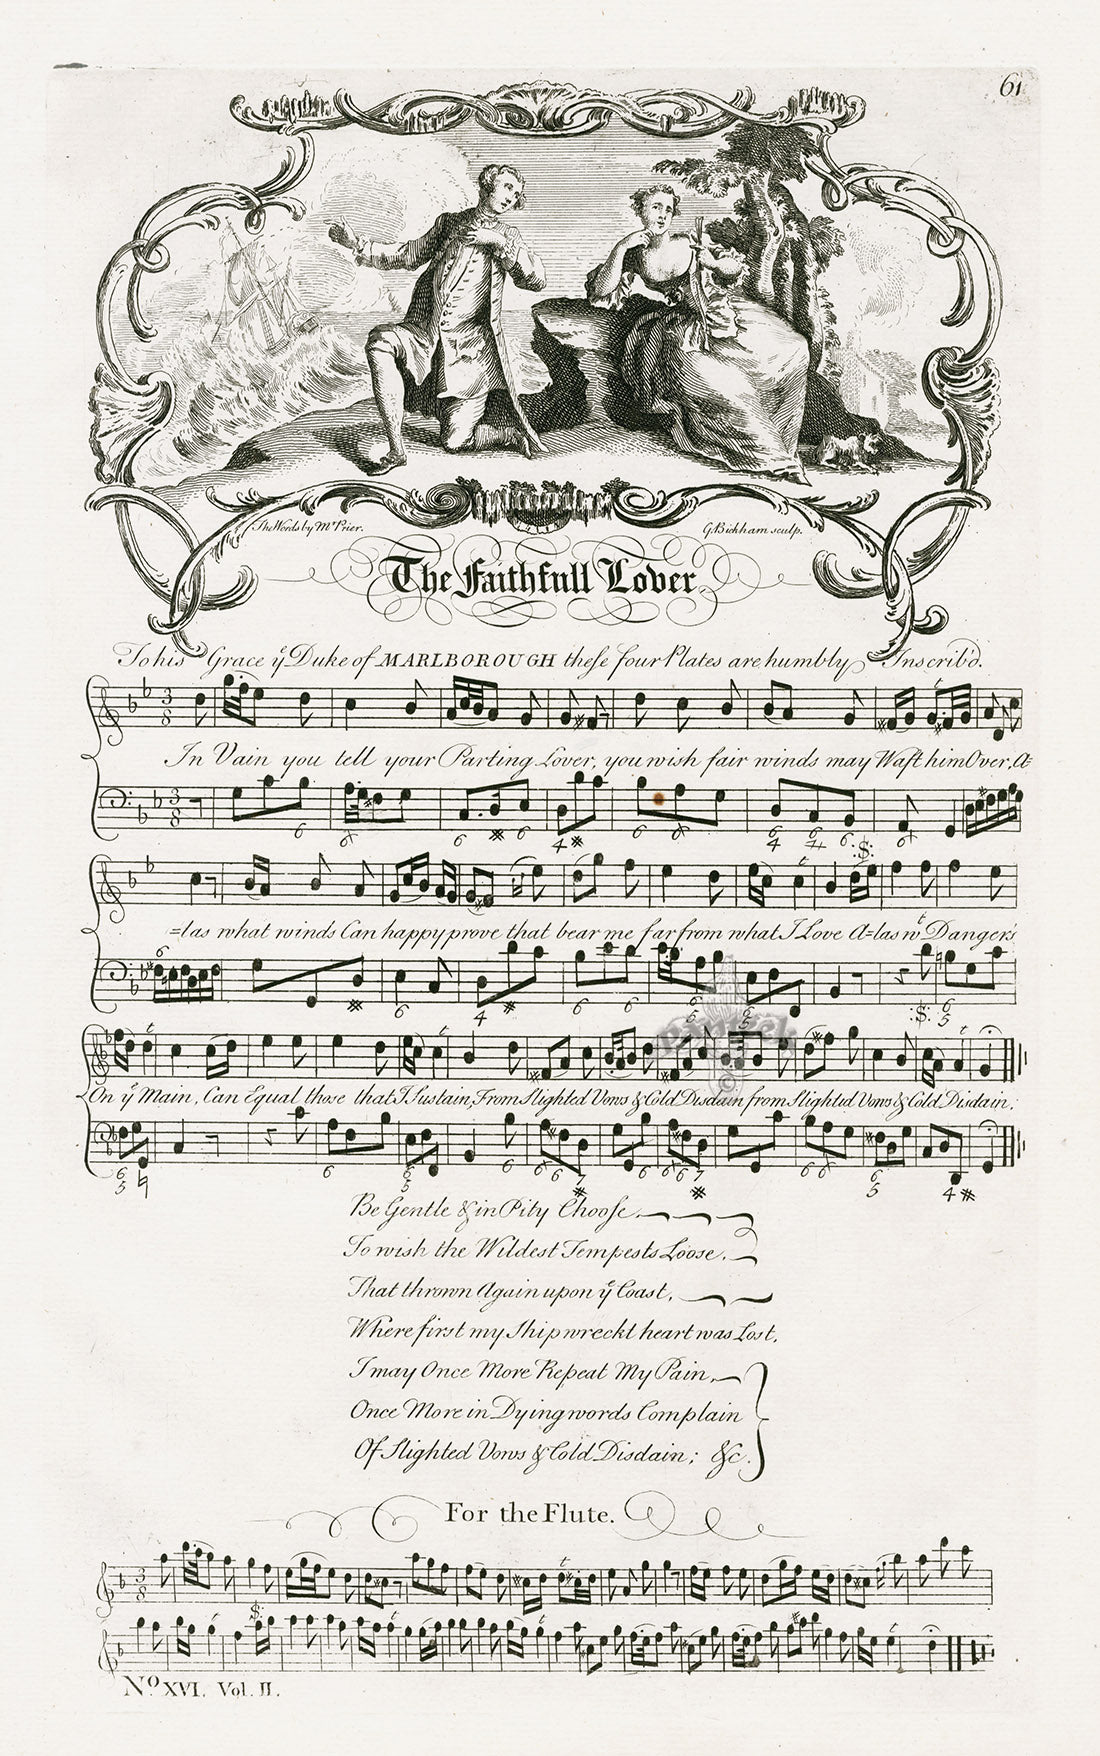 61
The Words by Mr. Prior.
G. Bickham sculp.
The Faithfull Lover
To his Grace ye Duke of MARLBOROUGH these four Plates are humbly Inscrib'd.
In Vain you tell your Parting Lover, you wish fair winds may Waft him Over, A-
=las what winds Can happy prove that bear me far from what I Love A=las wt Dangers
On ye Main, Can Equal those that I Sustain, From Slighted Vows & Cold Disdain from Slighted Vows & Cold Disdain;
Be Gentle & in Pity Choose
To wish the Wildest Tempests Loose,
That thrown Again upon ye Coast,
Where first my Shipwreckt heart was Lost,
I may Once More Repeat My Pain,
Once More in Dying words Complain
Of Slighted Vows & Cold Disdain; &c.
For the Flute.
No. XVI. Vol. II.